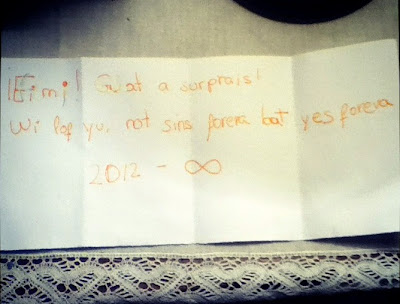 ¡Eimi! Guat a surprais!
Wi lof yu, not sins foreva bat yes foreva
2012 - ∞